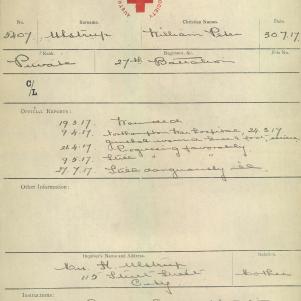 SOCIETY
No. Surname. Christian Names.
5407. Ulstrup William Peter 30.7.17
Rank. Regiment, &c. File No.
Private 27th Battalion
C/L
OFFICIAL REPORTS:
19.3.17. Wounded
9.4.17. Northampton War Hospital, 24.3.17
Gunshot wound
21.4.17 Progressing favorably
9.5.17. Still " "
27.7.17. Still dangerously ill
Other Information:
Inquirer's Name and Address. Relation.
Mrs. H. Ulstrup
115 Street Mother
City
Instructions: